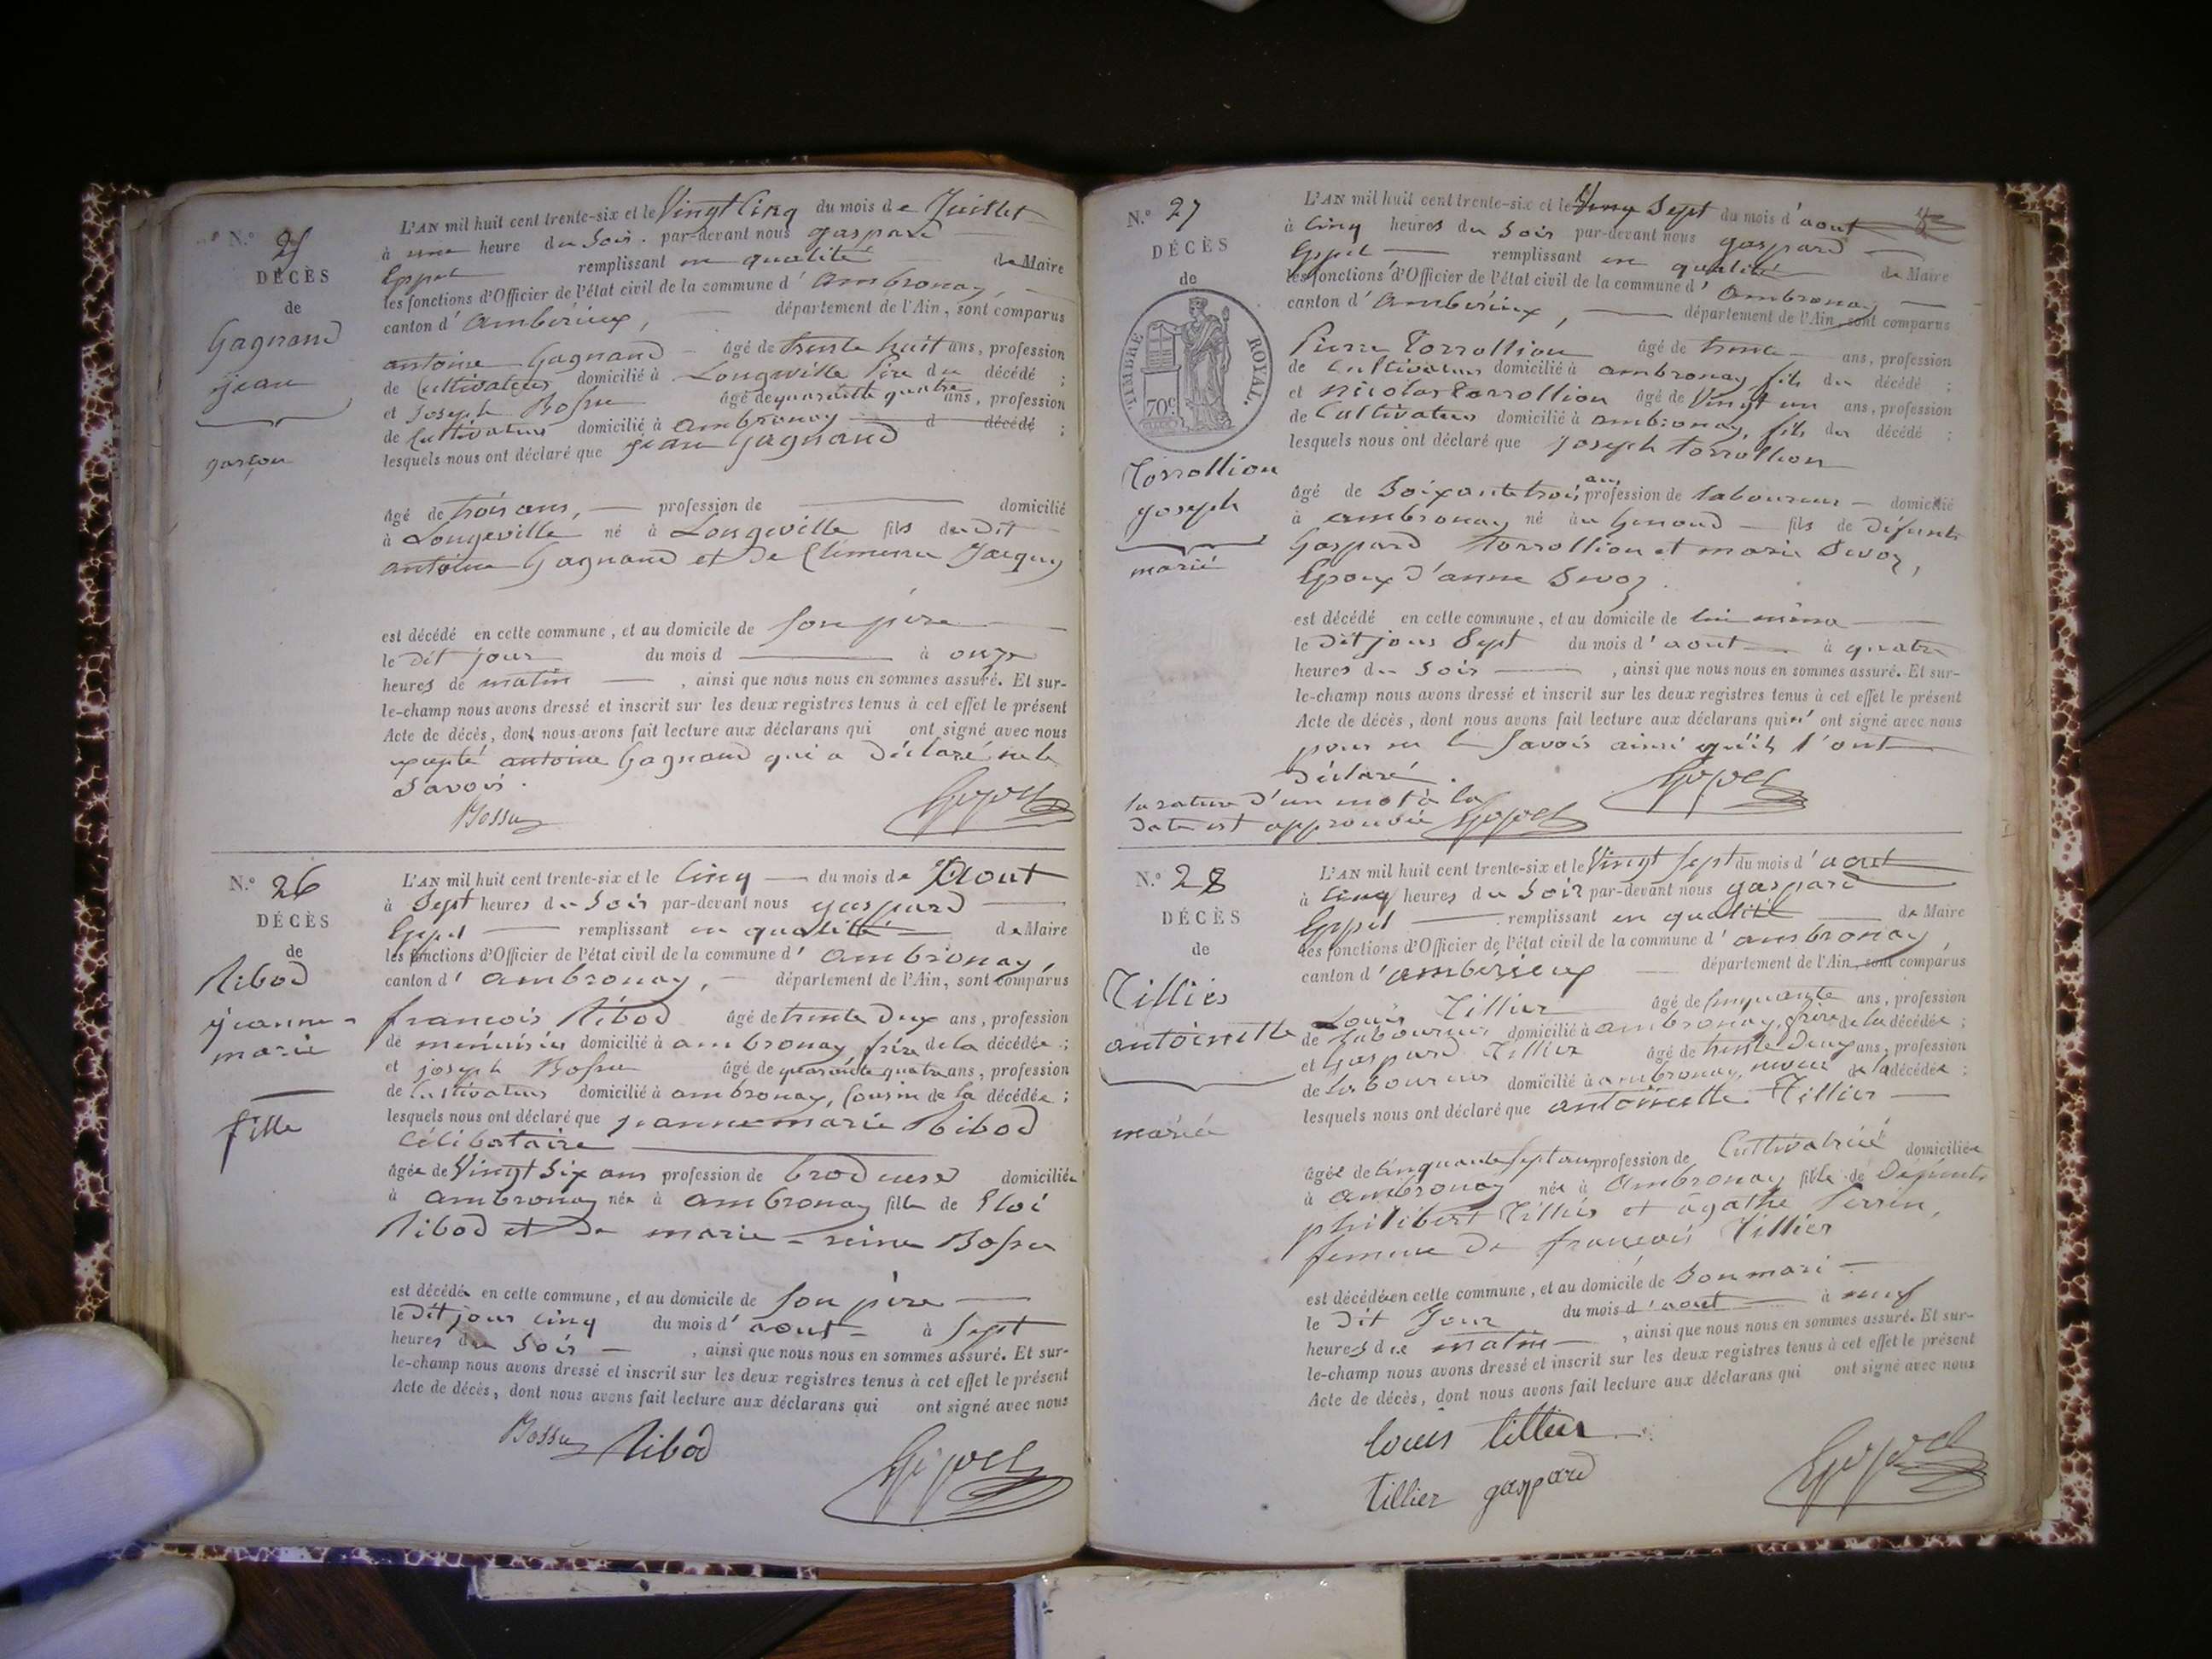 N.° 25
DÉCÈS
de
Gagnand
jean
garçon
L'AN mil huit cent trente-six et le Vingt Cinq du mois de Juillet
à une heure du Soir. par-devant nous gaspard
Eppel remplissant en qualité de Maire
les fonctions d'Officier de l'état civil de la commune d'ambronay,
canton d'ambérieux, département de l'Ain, sont comparus
antoine Gagnand âgé de trente huit ans, profession
de Cultivateur domicilié à Longeville Père du décédé ;
et Joseph Bossu âgé de quarante quatre ans, profession
de Cultivateur domicilié à ambronay d décédé ;
lesquels nous ont déclaré que jean Gagnand
âgé de trois ans, profession de domicilié
à Longeville né à Longeville fils du dit
antoine Gagnand et de Clémence Jacquy
est décédé en cette commune, et au domicile de son père
le dit jour du mois d à onze
heures de matin , ainsi que nous nous en sommes assuré. Et sur-
le-champ nous avons dressé et inscrit sur les deux registres tenus à cet effet le présent
Acte de décès, dont nous avons fait lecture aux déclarans qui ont signé avec nous
excepté antoine Gagnand qui a déclaré ne le
Savoir.
Bossu Eppel
N.° 26
DÉCÈS
de
Ribod
jeanne-
marie
fille
L'AN mil huit cent trente-six et le Cinq du mois de Aout
à Sept heures du Soir par-devant nous gaspard
Eppel remplissant en qualité de Maire
les fonctions d'Officier de l'état civil de la commune d'ambronay,
canton d'ambronay, département de l'Ain, sont comparus
françois Ribod âgé de trente deux ans, profession
de menuisier domicilié à ambronay frère de la décédée ;
et joseph Bossu âgé de quarante quatre ans, profession
de Cultivateur domicilié à ambronay, Cousin de la décédée ;
lesquels nous ont déclaré que jeanne marie Ribod
Célibataire
âgée de Vingt Six ans profession de brodeuse domiciliée
à ambronay née à ambronay fille de Eloi
Ribod et de marie-reine Bossu
est décédée en cette commune, et au domicile de son père
le dit jour cinq du mois d'aout à Sept
heures du Soir , ainsi que nous nous en sommes assuré. Et sur-
le-champ nous avons dressé et inscrit sur les deux registres tenus à cet effet le présent
Acte de décès, dont nous avons fait lecture aux déclarans qui ont signé avec nous
Bossu Ribod Eppel
N.° 27
DÉCÈS
de
TIMBRE ROYAL.
70c
Torrollion
joseph
marié
L'AN mil huit cent trente-six et le Vingt Sept du mois d'aout
à Cinq heures du Soir par-devant nous gaspard
Eppel remplissant en qualité de Maire
les fonctions d'Officier de l'état civil de la commune d'ambronay
canton d'ambérieux, département de l'Ain, sont comparus
Pierre Torrollion âgé de trente ans, profession
de Cultivateur domicilié à ambronay, fils du décédé ;
et Nicolas Torrollion âgé de Vingt un ans, profession
de Cultivateur domicilié à ambronay, fils du décédé ;
lesquels nous ont déclaré que joseph torrollion
âgé de Soixante trois ans profession de laboureur domicilié
à ambronay né au Genoud fils de Défunts
Gaspard torrollion et marie Sevoz,
Epoux d'anne Sevoz.
est décédé en cette commune, et au domicile de lui même
le dit jour Sept du mois d'aout à quatre
heures du Soir , ainsi que nous nous en sommes assuré. Et sur-
le-champ nous avons dressé et inscrit sur les deux registres tenus à cet effet le présent
Acte de décès, dont nous avons fait lecture aux déclarans qui n' ont signé avec nous
pour ne le Savoir ainsi qu'ils l'ont
Déclaré.
la rature d'un mot à la
date est approuvée Eppel Eppel
N.° 28
DÉCÈS
de
Tillier
antoinette
mariée
L'AN mil huit cent trente-six et le Vingt Sept du mois d'aout
à Cinq heures du Soir par-devant nous gaspard
Eppel remplissant en qualité de Maire
les fonctions d'Officier de l'état civil de la commune d'ambronay,
canton d'ambérieux département de l'Ain, sont comparus
Louis Tillier âgé de Cinquante ans, profession
de Laboureur domicilié à ambronay, frère de la décédée ;
et Gaspard Tillier âgé de trente Deux ans, profession
de Laboureur domicilié à ambronay, neveu de la décédée ;
lesquels nous ont déclaré que antoinette Tillier
âgée de Cinquante Sept ans profession de Cultivatrice domiciliée
à ambronay née à ambronay fille de Défunts
philibert Tillier et agathe Perrin,
femme de françois Tillier
est décédée en cette commune, et au domicile de Son mari
le dit Jour du mois d'aout à neuf
heures de matin , ainsi que nous nous en sommes assuré. Et sur-
le-champ nous avons dressé et inscrit sur les deux registres tenus à cet effet le présent
Acte de décès, dont nous avons fait lecture aux déclarans qui ont signé avec nous
louis tillier
tillier gaspard Eppel